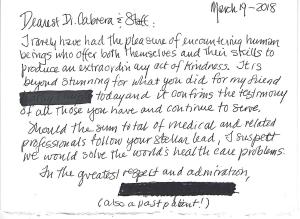 March 19 - 2018
Dearest Dr. Cabrera & Staff:
I rarely have had the pleasure of encountering human
beings who offer both themselves and their skills to
produce an extraordinary act of kindness. It is
beyond stunning for what you did for my friend
today and it confirms the testimony
of all those you have and continue to serve.
Should the sum total of medical and related
professionals follow your stellar lead, I suspect
we would solve the world's health care problems.
In the greatest respect and admiration,
(also a past patient!)